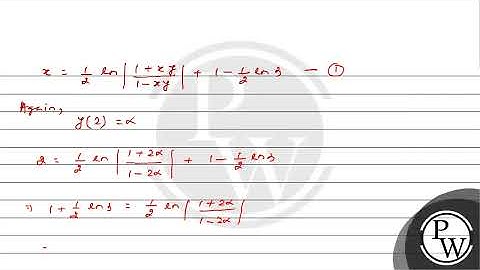 x = 1/2 ln |(1+xy)/(1-xy)| + 1 - 1/2 ln 3 — ①
Again,
y(2) = α
2 = 1/2 ln |(1+2α)/(1-2α)| + 1 - 1/2 ln 3
⇒ 1 + 1/2 ln 3 = 1/2 ln |(1+2α)/(1-2α)|
PW
PW